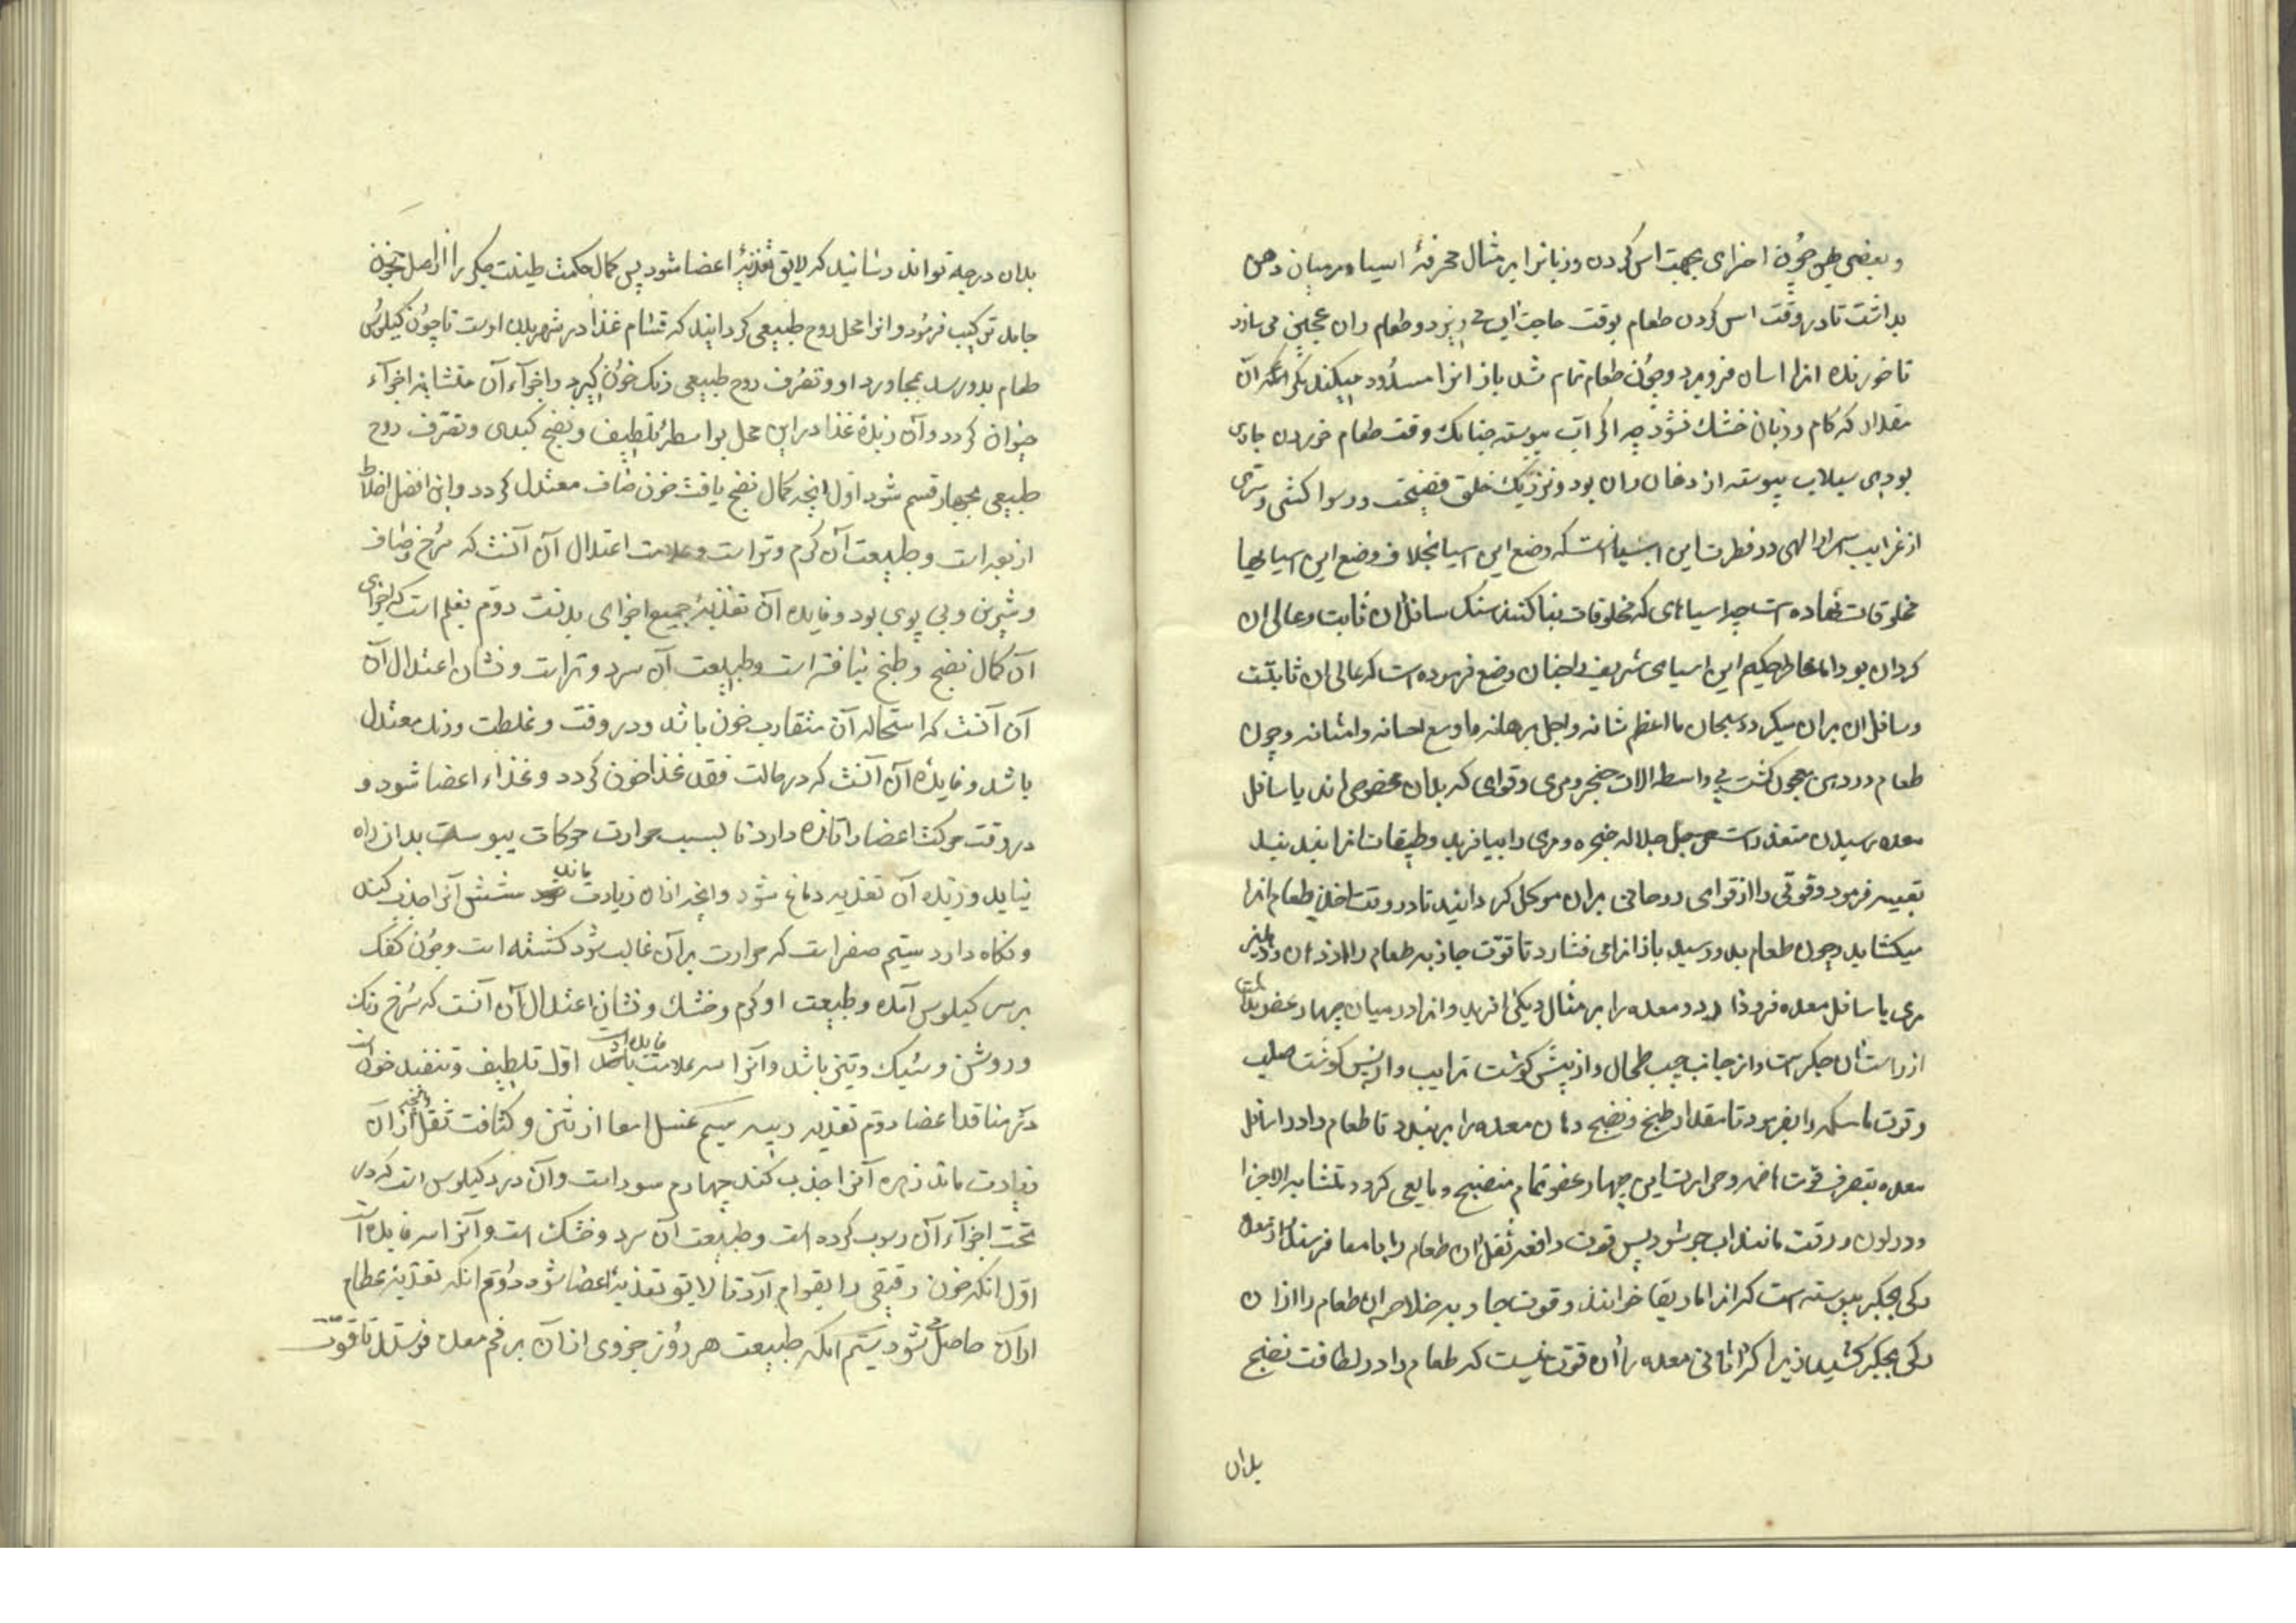 و بعضی پهن چون اضراس بجهت آس کردن و زبانرا بر مثال مجرفهٔ آسیا در میان دهن
بداشت تا در وقت آس کردن طعام بوقت حاجت آب می‌ریزد و طعام را عجین می سازد
تا خورنده انرا اسان فرو برد و چون طعام تمام شد باز انرا مسدود میکند مگر آن
مقدار که کام و زبان خشك نشود چه اکر آب پیوسته چنانك وقت طعام خوردن جاری
بودی سیلاب پیوسته از دهان روان بود و نزدیك خلق فضیحت و رسوا کشتی و سری
از غرایب اسرار الهی در فطرت این آسیا آنست که وضع این آسیا بخلاف وضع این آسیایها
مخلوقات نهاده است چه آسیاهای که مخلوقات بنا کنند سنك سافل ان ثابت و عالی ان
کردان بود اما فاطر حکیم این آسیای شریف را چنان وضع فرموده است که عالی ان ثابتست
و سافل ان بران میکردد سبحان ما اعظم شانه و اجل برهانه و اوسع احسانه و امتنانه و چون
طعام در دهن معجون کشت بی واسطه الات حنجر و مری و قوای که بدان مخصوص اند باسافل
معده رسیدن متعذرست جل جلاله حنجره و مری را بیافرید و طبقات انرا
تعبیه فرمود و قوتی را از قوای روحانی بران موکل کردانید تا در وقت اخذ طعام انرا
میکشاید و چون طعام بدو رسید باز انرا می فشارد تا قوت جاذبه طعام را از دهان
مری باسافل معده فرو کذارد و معده را بر مثال دیکی افرید و انرا در میان چهار عضو بداشت
از راست ان جکرست و از جانب چپ طحال و از پیش کوشت ترایب و از پس کوشت صلب
و قوت ماسکه را بفرمود تا مقدار طبخ و نضج دهان معده را ببندد تا طعام را در اسافل
معده بتصرف قوت هاضمه و حرارت این چهار عضو تمام منضج و مایعی کردد متشابه الاجزا
و در لون و رقت مانند اب جو شود پس قوت دافعه ثفل ان طعام را بامعا فرستد و از معده
رکی بجکر پیوسته است که انرا ماساریقا خوانند و قوت جاذبه خلاصه ان طعام را از ان
رکی بجکر کشید زیرا که نازکی معده را ان قوت نیست که طعام را در لطافت نضج
بدان
بدان درجه تواند رسانید که لایق تغذیهٔ اعضا شود پس کمال حکمت طینت جکر را از اصل خون
جامد ترکیب فرمود و انرا محل روح طبیعی کردانید که قسّام غذا در شهر بدن اوست تا چون کیلوس
طعام بدو رسد بمجاورت او و تصرف روح طبیعی رنك خون کیرد و اجزآء آن متشابه اجزآء
خون کردد و آن زبدهٔ غذا درین محل بواسطهٔ تلطیف و نضج کبدی و تصرف روح
طبیعی بچهار قسم شود اول انچه کمال نضج یافت خون صاف معتدل کردد و این افضل اخلاط
اربعه است و طبیعت آن کرم و تر است و علامت اعتدال آن آنست که سرخ و صاف
و شیرین و بی بوی بود و فایده آن تغذیهٔ جمیع اجزای بدنست دوم بلغم است که اجزای
آن کمال نضج و طبخ نیافته است و طبیعت آن سرد و تر است و نشان اعتدال آن
آن آنست که استحاله آن متقارب خون باشد و در رقت و غلظت و رنك معتدل
باشد و فایدهٔ آن آنست که در حالت فقد غذا خون کردد و غذاء اعضا شود و
در وقت حرکت اعضا را تازه دارد تا بسبب حرارت حرکات یبوست بدان راه
نیابد و زبده آن تغذیه دماغ شود و انچه ازان زیادت ماند شش آنرا جذب کند
و نکاه دارد سیّم صفراست که حرارت بر آن غالب شود کشته است و چون کفک
بر سر کیلوس آمده و طبیعت او کرم و خشك و نشان اعتدال آن آنست که سرخ رنك
و روشن و سبك و تیز باشد و آنرا سه فایده است اول تلطیف و تنفیذ خون است
در منافذ اعضا دوم تغذیه ریه سیم غسل امعا از نتن و کثافت ثفل و انچه از ان
زیادت ماند زهره آنرا جذب کند چهارم سودا است و آن درد کیلوس است که در
تحت اجزآء آن رسوب کرده است و طبیعت ان سرد و خشك است و آنرا سه فایده است
اوّل انکه خون رقیق را بقوام آرد تا لایق تغذیهٔ اعضا شود دوّم انکه تغذیهٔ عظام
ازان حاصل شود سیّم انکه طبیعت هر روز جزوی از آن بر فم معده فرستد تا قوّت